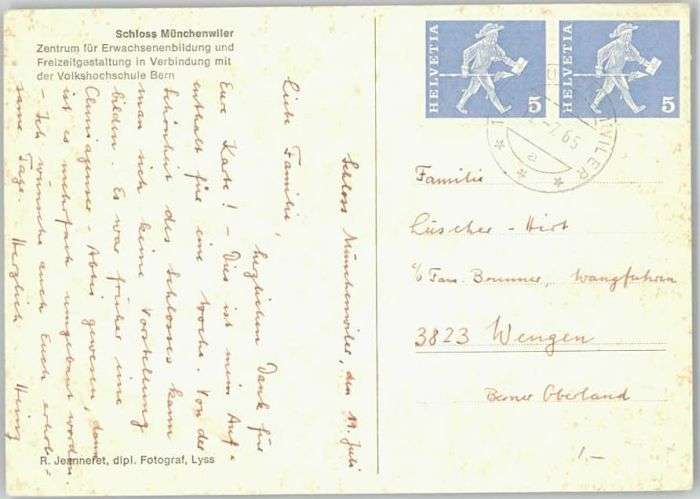 Schloss Münchenwiler
Zentrum für Erwachsenenbildung und
Freizeitgestaltung in Verbindung mit
der Volkshochschule Bern
Schloss Münchenwiler, den 11. Juli
Liebe Familie,
herzlichen Dank für
Eure Karte! – Dies ist mein Auf-
enthalt für eine Woche. Von der
Schönheit des Schlosses kann
man sich keine Vorstellung
bilden. Es war früher eine
Cluniazenser-Abtei gewesen, dann
ist es mehrfach umgebaut worden.
– Ich wünsche auch Euch erholsame
Tage. Herzlich
R. Jeanneret, dipl. Fotograf, Lyss
HELVETIA 5
HELVETIA 5
WILER
7.65
a
Familie
Lüscher-Hirt
c/o Fam. Brunner, Wangfuhren
3823 Wengen
Berner Oberland
1.-